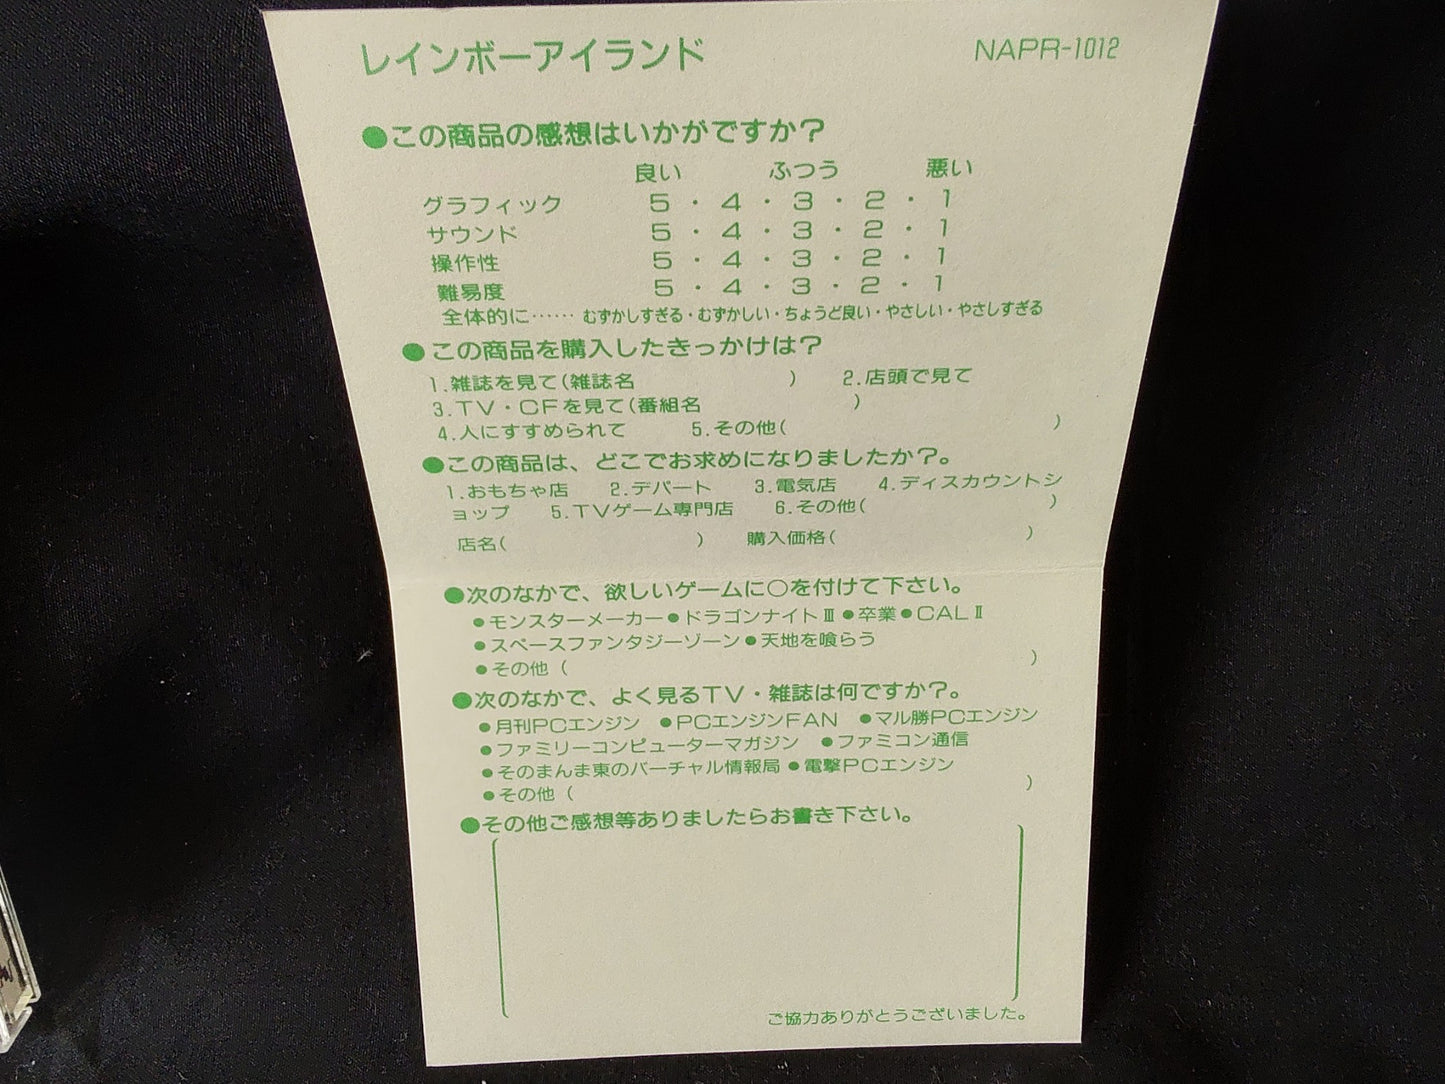 レインボーアイランド NAPR-1012
●この商品の感想はいかがですか？
良い ふつう 悪い
グラフィック 5・4・3・2・1
サウンド 5・4・3・2・1
操作性 5・4・3・2・1
難易度 5・4・3・2・1
全体的に…… むずかしすぎる・むずかしい・ちょうど良い・やさしい・やさしすぎる
●この商品を購入したきっかけは？
1.雑誌を見て(雑誌名 ) 2.店頭で見て
3.TV・CFを見て(番組名 )
4.人にすすめられて 5.その他( )
●この商品は、どこでお求めになりましたか？。
1.おもちゃ店 2.デパート 3.電気店 4.ディスカウントシ
ョップ 5.TVゲーム専門店 6.その他( )
店名( ) 購入価格( )
●次のなかで、欲しいゲームに○を付けて下さい。
●モンスターメーカー●ドラゴンナイトⅢ●卒業●CALⅡ
●スペースファンタジーゾーン●天地を喰らう
●その他 ( )
●次のなかで、よく見るTV・雑誌は何ですか？。
●月刊PCエンジン ●PCエンジンFAN ●マル勝PCエンジン
●ファミリーコンピューターマガジン ●ファミコン通信
●そのまんま東のバーチャル情報局●電撃PCエンジン
●その他 ( )
●その他ご感想等ありましたらお書き下さい。
ご協力ありがとうございました。